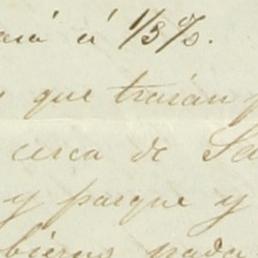 á 1/3 %.
que traían
cerca de Sa
y parque y
bierno nada